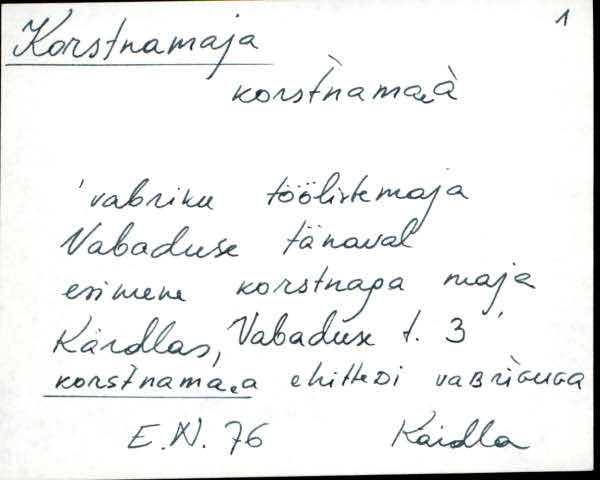 Korstnamaja 1
korstnamaa̯à
'vabriku töölistemaja
Vabaduse tänaval
esimene korstnaga maja
Kärdlas, Vabaduse t. 3'
korstnamaa̯a ehitteᴅi vaʙriɢuɢa
E.N. 76 Kärdla